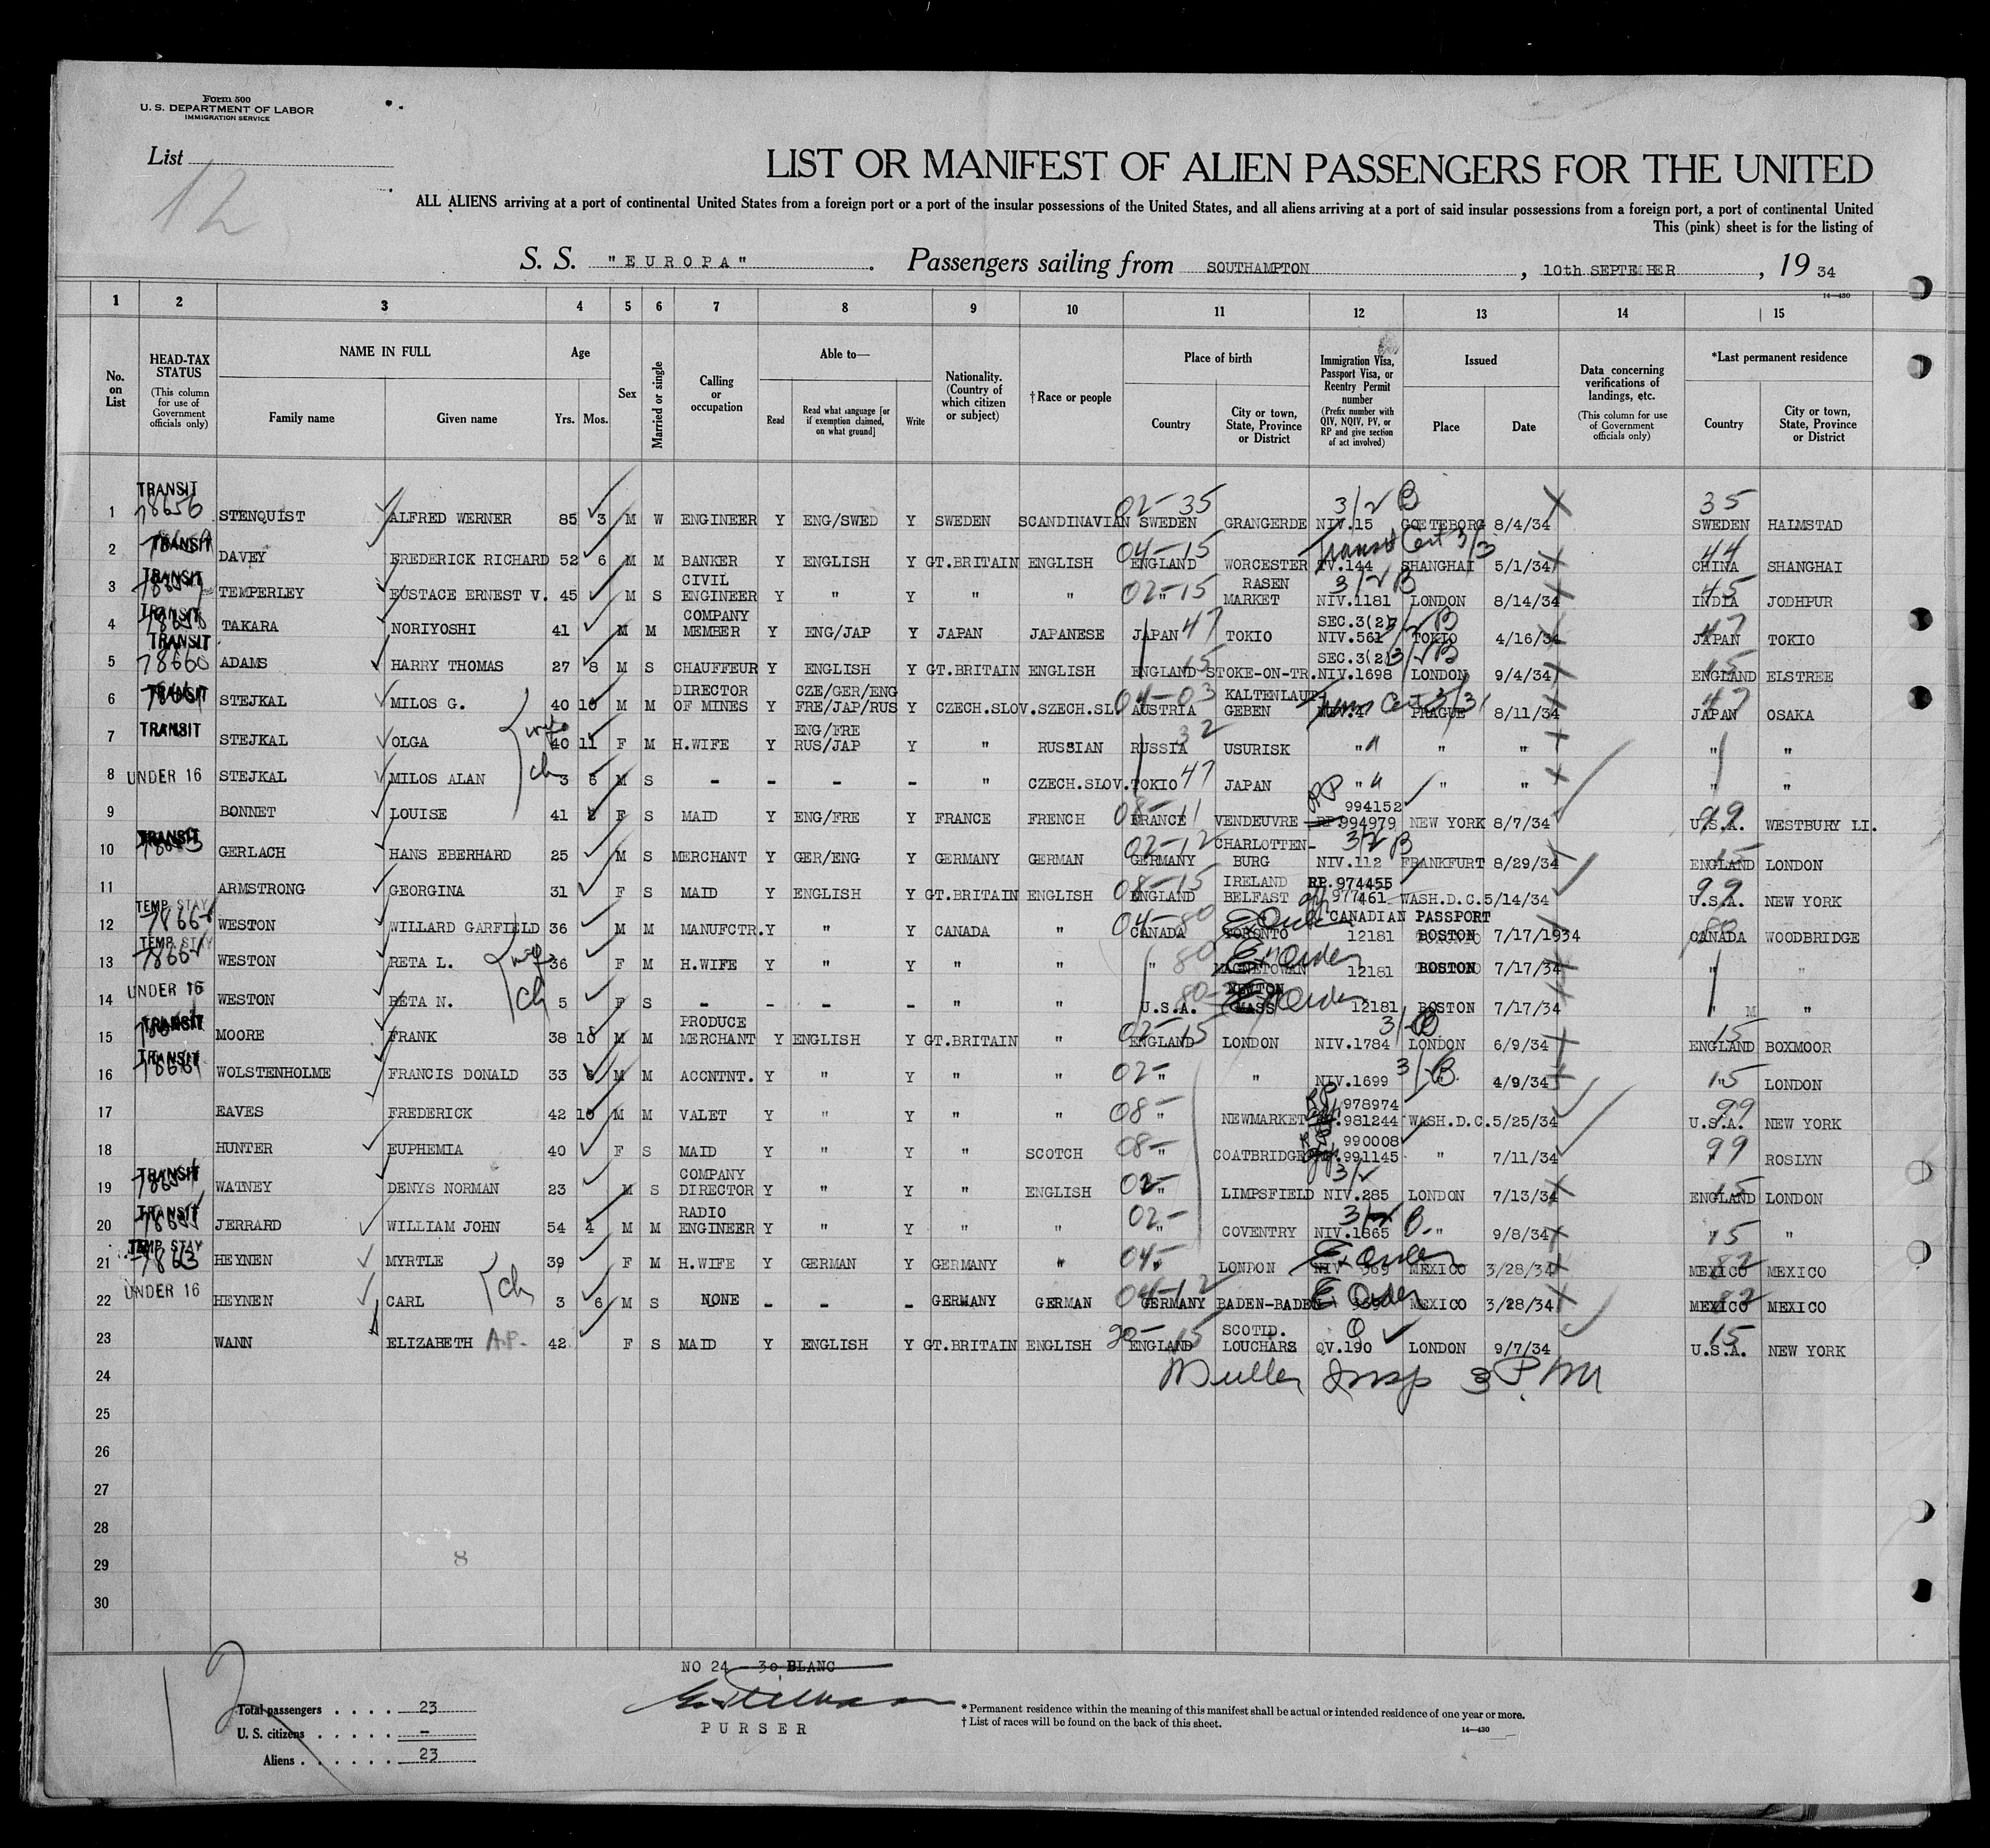 Form 500
U. S. DEPARTMENT OF LABOR
IMMIGRATION SERVICE
List
12
LIST OR MANIFEST OF ALIEN PASSENGERS FOR THE UNITED
ALL ALIENS arriving at a port of continental United States from a foreign port or a port of the insular possessions of the United States, and all aliens arriving at a port of said insular possessions from a foreign port, a port of continental United
This (pink) sheet is for the listing of
S. S. "EUROPA". Passengers sailing from SOUTHAMPTON, 10th SEPTEMBER, 19 34
14—430
1 2 3 4 5 6 7 8 9 10 11 12 13 14 15
No. on List
HEAD-TAX STATUS (This column for use of Government officials only)
NAME IN FULL Family name Given name
Age Yrs. Mos.
Sex
Married or single
Calling or occupation
Able to— Read Read what language [or if exemption claimed, on what ground] Write
Nationality. (Country of which citizen or subject)
†Race or people
Place of birth Country City or town, State, Province or District
Immigration Visa, Passport Visa, or Reentry Permit number (Prefix number with QIV, NQIV, PV, or RP and give section of act involved)
Issued Place Date
Data concerning verifications of landings, etc. (This column for use of Government officials only)
*Last permanent residence Country City or town, State, Province or District
1 TRANSIT 78656 STENQUIST ALFRED WERNER 85 3 M W ENGINEER Y ENG/SWED Y SWEDEN SCANDINAVIAN 02-35 SWEDEN GRANGERDE 3/2 B NIV.15 GOETEBORG 8/4/34 35 SWEDEN HALMSTAD
2 TRANSIT DAVEY FREDERICK RICHARD 52 6 M M BANKER Y ENGLISH Y GT.BRITAIN ENGLISH 04-15 ENGLAND WORCESTER Transit Cert 3/3 TV.144 SHANGHAI 5/1/34 44 CHINA SHANGHAI
3 TRANSIT TEMPERLEY EUSTACE ERNEST V. 45 M S CIVIL ENGINEER Y " Y " " 02-15 " RASEN MARKET 3/2 B NIV.1181 LONDON 8/14/34 45 INDIA JODHPUR
4 TRANSIT TAKARA NORIYOSHI 41 M M COMPANY MEMBER Y ENG/JAP Y JAPAN JAPANESE JAPAN 47 TOKIO SEC.3(2) NIV.561 3/2 B TOKIO 4/16/34 47 JAPAN TOKIO
5 TRANSIT 78660 ADAMS HARRY THOMAS 27 8 M S CHAUFFEUR Y ENGLISH Y GT.BRITAIN ENGLISH ENGLAND 15 STOKE-ON-TR. SEC.3(2) NIV.1698 3/2 B LONDON 9/4/34 15 ENGLAND ELSTREE
6 TRANSIT STEJKAL MILOS G. 40 10 M M DIRECTOR OF MINES Y CZE/GER/ENG FRE/JAP/RUS Y CZECH.SLOV. SZECH.SL. 04-03 AUSTRIA KALTENLAUT- GEBEN Cert 3/3 PRAGUE 8/11/34 47 JAPAN OSAKA
7 TRANSIT STEJKAL OLGA wife 40 11 F M H.WIFE Y ENG/FRE RUS/JAP Y " RUSSIAN RUSSIA 32 USURISK " " " " " "
8 UNDER 16 STEJKAL MILOS ALAN ch 3 5 M S - - - - " CZECH.SLOV. TOKIO 47 JAPAN " " " " " "
9 BONNET LOUISE 41 F S MAID Y ENG/FRE Y FRANCE FRENCH 08-11 FRANCE VENDEUVRE RP 994152 RP.994979 NEW YORK 8/7/34 99 U.S.A. WESTBURY LI.
10 TRANSIT GERLACH HANS EBERHARD 25 M S MERCHANT Y GER/ENG Y GERMANY GERMAN 02-12 GERMANY CHARLOTTEN- BURG 3/2 B NIV.112 FRANKFURT 8/29/34 15 ENGLAND LONDON
11 ARMSTRONG GEORGINA 31 F S MAID Y ENGLISH Y GT.BRITAIN ENGLISH 08-15 ENGLAND IRELAND BELFAST RP.974455 977461 WASH.D.C. 5/14/34 99 U.S.A. NEW YORK
12 TEMP. STAY WESTON WILLARD GARFIELD 36 M M MANUFCTR. Y " Y CANADA " 04-80 CANADA TORONTO CANADIAN PASSPORT 12181 BOSTON 7/17/1934 80 CANADA WOODBRIDGE
13 TEMP. STAY WESTON RETA L. wife 36 F M H.WIFE Y " Y " " " 80 MAGNETOWAN Ex Order 12181 BOSTON 7/17/34 " "
14 UNDER 16 WESTON RETA N. ch 5 F S - - - - " " U.S.A. 80 NEWTON MASS Ex Order 12181 BOSTON 7/17/34 " "
15 TRANSIT MOORE FRANK 38 10 M M PRODUCE MERCHANT Y ENGLISH Y GT.BRITAIN " 02-15 ENGLAND LONDON NIV.1784 LONDON 6/9/34 15 ENGLAND BOXMOOR
16 TRANSIT WOLSTENHOLME FRANCIS DONALD 33 6 M M ACCNTNT. Y " Y " " 02- " " NIV.1699 " 4/9/34 15 " LONDON
17 EAVES FREDERICK 42 10 M M VALET Y " Y " " 08- " NEWMARKET RP 978974 .981244 WASH.D.C. 5/25/34 99 U.S.A. NEW YORK
18 HUNTER EUPHEMIA 40 F S MAID Y " Y " SCOTCH 08- " COATBRIDGE RP 990008 .991145 " 7/11/34 99 ROSLYN
19 TRANSIT WATNEY DENYS NORMAN 23 M S COMPANY DIRECTOR Y " Y " ENGLISH 02- " LIMPSFIELD 3/2 NIV.285 LONDON 7/13/34 15 ENGLAND LONDON
20 TRANSIT JERRARD WILLIAM JOHN 54 4 M M RADIO ENGINEER Y " Y " " 02- " COVENTRY 3/2 B. NIV.1865 " 9/8/34 15 " "
21 TEMP. STAY HEYNEN MYRTLE 39 F M H.WIFE Y GERMAN Y GERMANY " 04- " LONDON Ex Order NIV 969 MEXICO 3/28/34 82 MEXICO MEXICO
22 UNDER 16 HEYNEN CARL ch 3 6 M S NONE - - - GERMANY GERMAN 04-12 GERMANY BADEN-BADEN E Order 969 MEXICO 3/28/34 82 MEXICO MEXICO
23 WANN ELIZABETH A.P. 42 F S MAID Y ENGLISH Y GT.BRITAIN ENGLISH 20-15 ENGLAND SCOTID. LOUCHARS QV.190 LONDON 9/7/34 15 U.S.A. NEW YORK
24 Muller Insp 3 P.M
25
26
27
28
29
30
8
NO 24 30 BLANC
PURSER
12
Total passengers . . . . 23
U. S. citizens . . . . . -
Aliens . . . . . . 23
* Permanent residence within the meaning of this manifest shall be actual or intended residence of one year or more.
† List of races will be found on the back of this sheet.
14—430